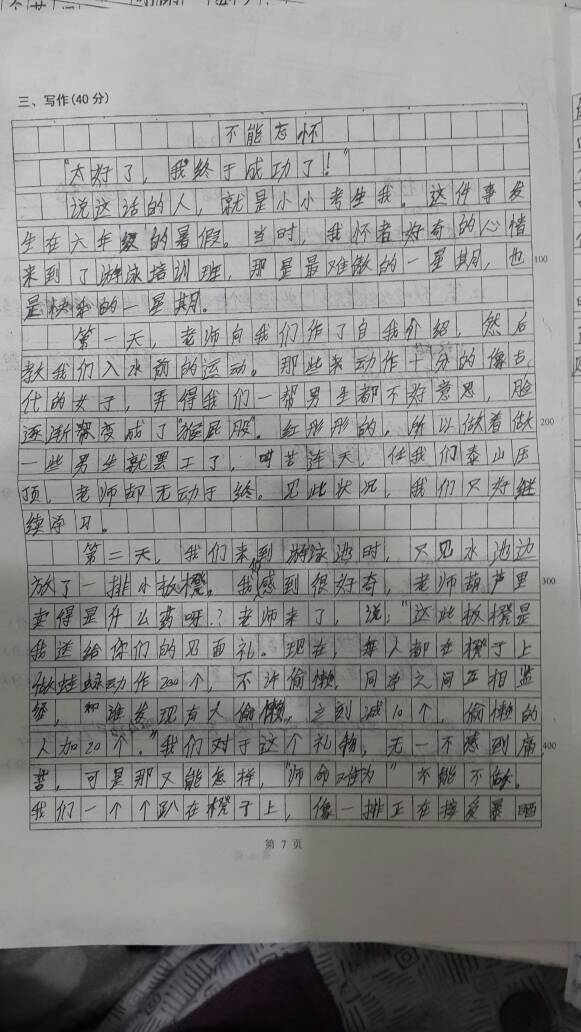 三、写作(40分)
不能忘怀
“太好了，我终于成功了！”
说这话的人，就是小小考生我。这件事发
生在六年级的暑假。当时，我怀着好奇的心情
来到了游泳培训班，那是最难做的一星期，也
100
是快乐的一星期。
第一天，老师向我们作了自我介绍，然后
教我们入水前的运动。那些来动作十分的像古
代的女子，弄得我们一帮男生都不好意思，脸
逐渐变成了“猴屁股”。红彤彤的，所以做着做
200
一些男生就罢工了，叫苦连天，任我们泰山压
顶，老师却无动于终。见此状况，我们只好继
续学习。
第二天，我们来到游泳池时，只见水池边
放了一排小板凳。我感到很好奇，老师葫芦里
300
卖得是什么药呀？老师来了，说：“这些板凳是
我送给你们的见面礼。现在，每人都在凳子上
做蛙泳动作200个，不许偷懒，同学之间互相监
，谁发现有人偷懒，之到减10个，偷懒的
人加20个。”我们对于这个礼物，无一不感到痛
400
苦，可是那又能怎样，“师命难为”不能不做。
我们一个个趴在凳子上，像一排正在接受暴晒
第 7 页